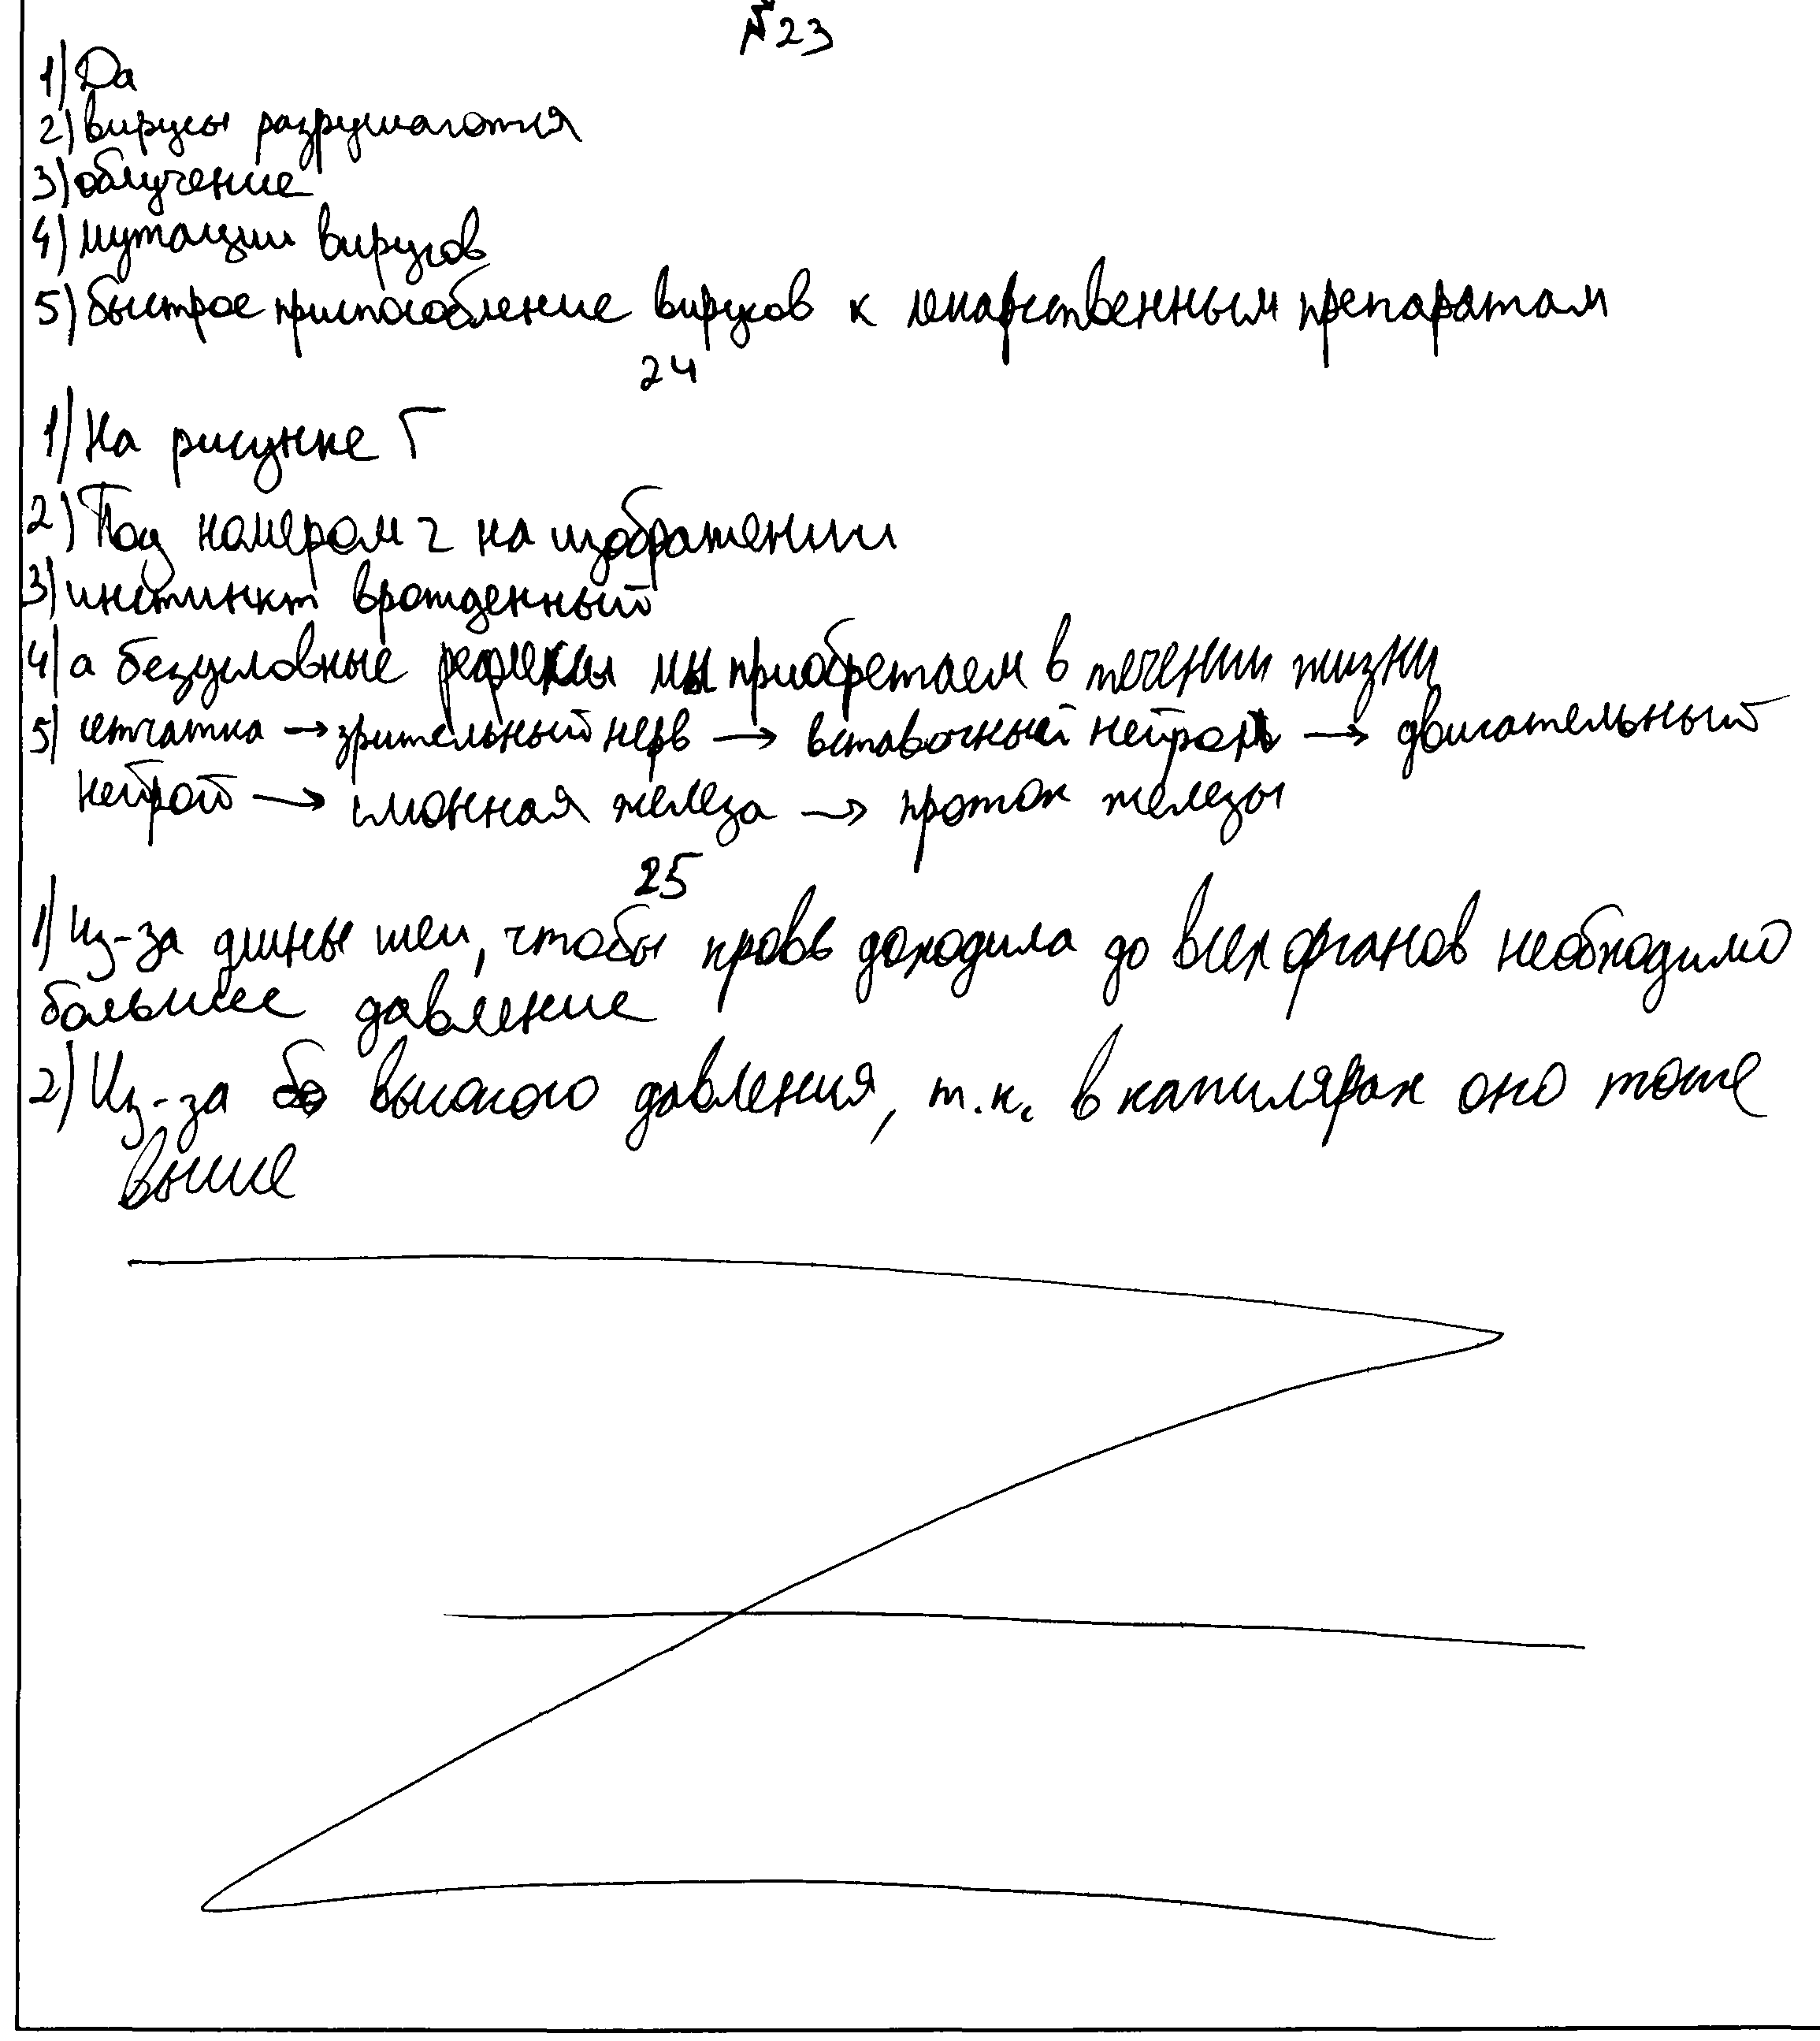 №23
1) Да
2) вирусы разрушаются
3) облучение
4) мутации вирусов
5) быстрое приспособление вирусов к лекарственным препаратам
24
1) На рисунке Г
2) Под номером 2 на изображении
3) инстинкт врожденный
4) а безусловные рефлексы мы приобретаем в течении жизни
5) сетчатка → зрительный нерв → вставочный нейрон → двигательный
нейрой → слюнная железа → проток железы
25
1) Из-за длины шеи, чтобы кровь доходила до всех органов необходимо
большее давление
2) Из-за высокого давления, т.к. в капилярах оно тоже
выше